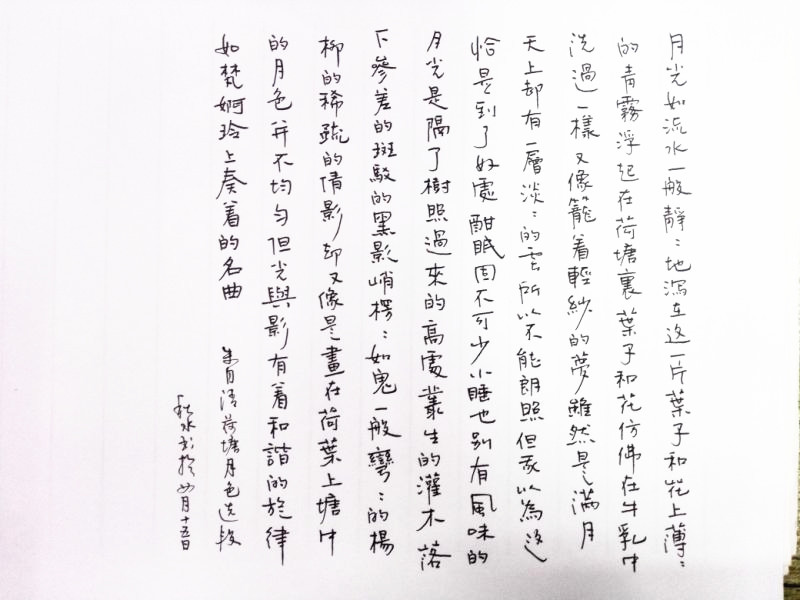 月光如流水一般靜：地瀉在这一片葉子和花上薄：
的青霧浮起在荷塘裏葉子和花仿佛在牛乳中
洗過一樣又像籠着輕紗的夢雖然是滿月
天上却有一層淡：的雲所以不能朗照但我以為這
恰是到了好處酣眠固不可少小睡也别有風味的
月光是隔了樹照過來的高處叢生的灌木落
下參差的斑駁的黑影峭楞：如鬼一般彎：的楊
柳的稀疏的倩影却又像是畫在荷葉上塘中
的月色并不均匀但光與影有着和諧的旋律
如梵婀玲上奏着的名曲 朱自清荷塘月色选段
秋水書於 月十五日